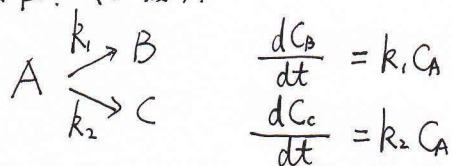 k₁
A → B
dC_B/dt = k₁C_A
A → C
k₂
dC_c/dt = k₂C_A